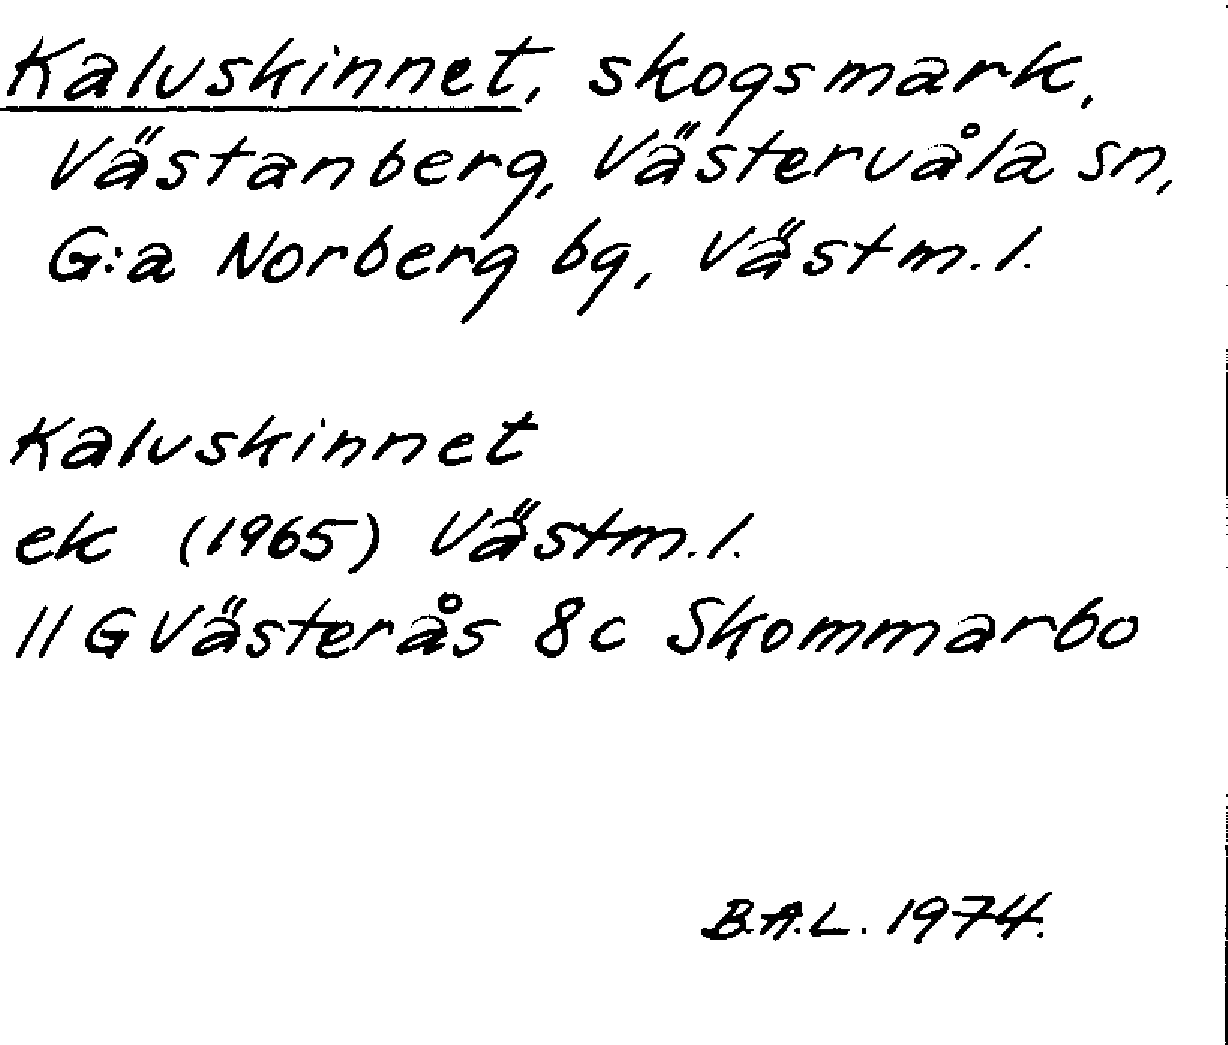 Kalvskinnet, skogsmark,
Västanberg, Västervåla sn,
G:a Norberg bg, Västm.l.
Kalvskinnet
ek (1965) Västm.l.
11G Västerås 8c Skommarbo
B.A.L. 1974.